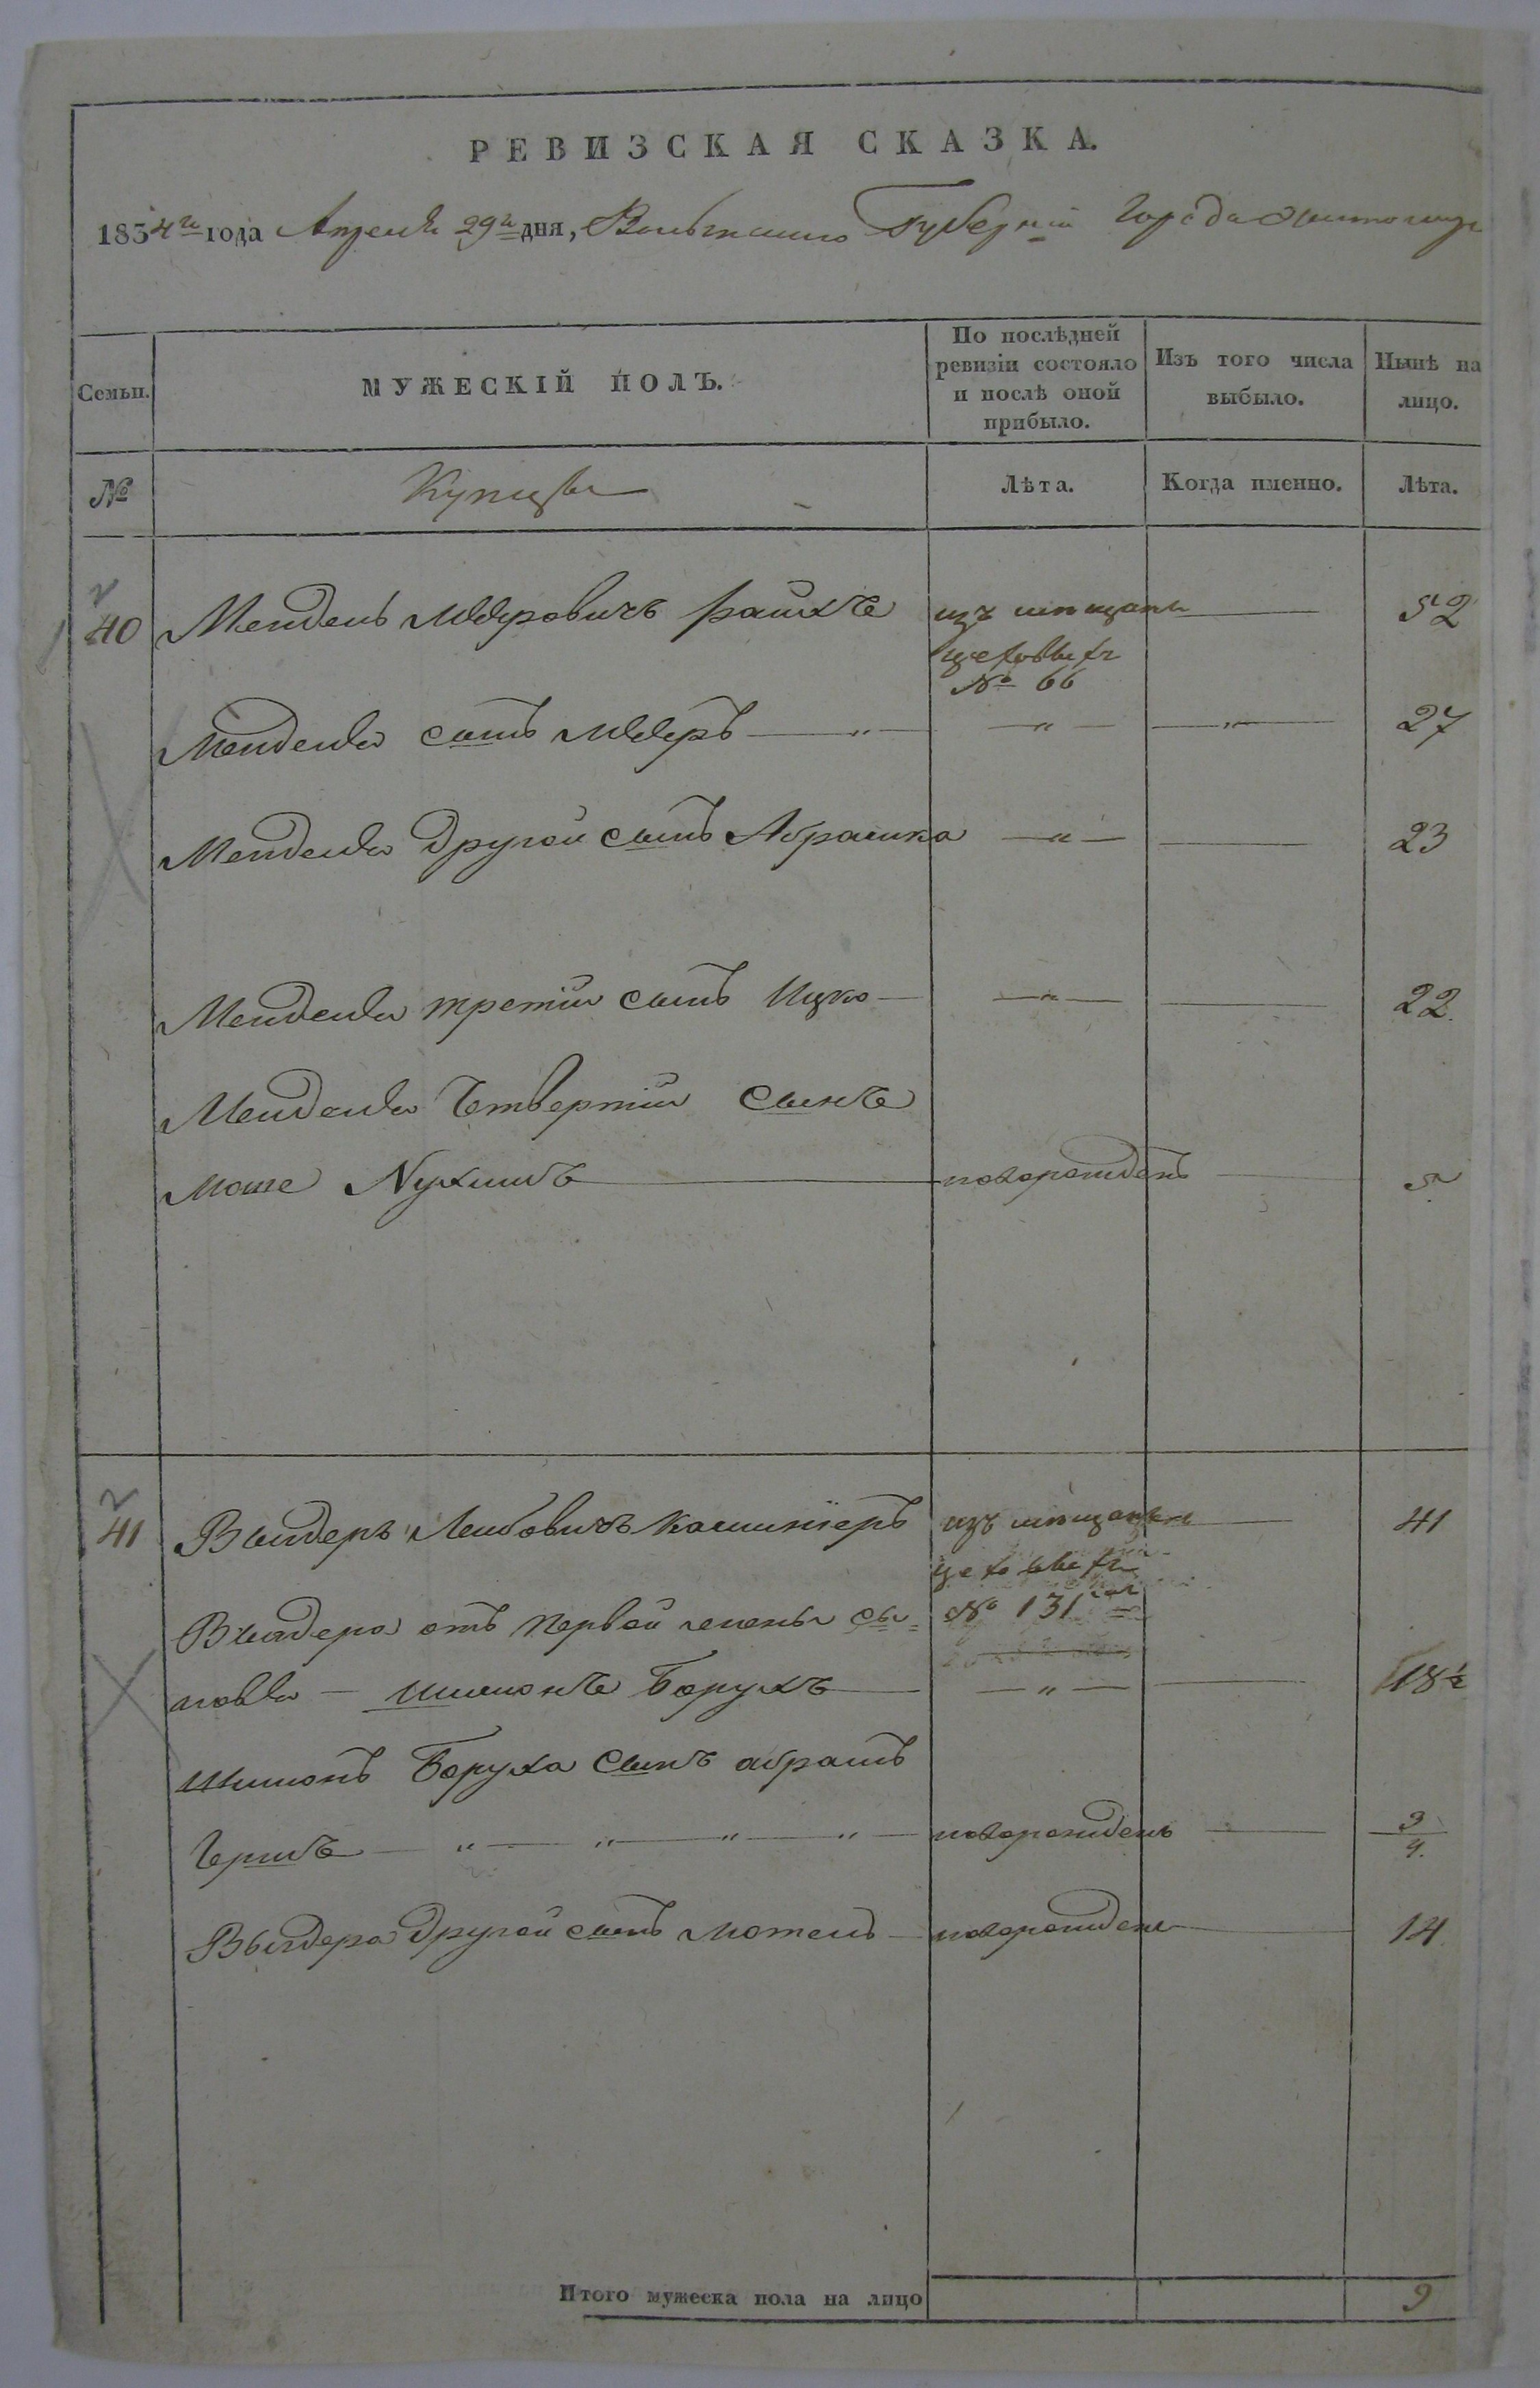 РЕВИЗСКАЯ СКАЗКА.
1834го года Апреля 29го дня, Волынской Губерніи Города Житомира
Семьи.
МУЖЕСКІЙ ПОЛЪ.
По послѣдней ревизіи состояло и послѣ оной прибыло.
Изъ того числа выбыло.
Нынѣ на лицо.
№
Купцы
Лѣта.
Когда именно.
Лѣта.
40 Мендель Мееровичъ Райхъ изъ мѣщанъ 52
цеховыхъ
№ 66
Менделя сынъ Мееръ — " — — " — — " — 27
Менделя другой сынъ Абрамка — " — 23
Менделя третій сынъ Ицко — " — 22.
Менделя Четвертій сынъ
Моше Нухимъ новорожденъ 5.
41 Лейбовичъ изъ мѣщанъ 41
цеховыхъ
отъ первой жены сы= № 131
новья — Шимонъ Борухъ — " — 18½
Шимонъ Боруха сынъ абрамъ
Гершъ — " — " — " — " — новорожденъ 3/4.
другой сынъ Мотель новорожденъ 14.
Итого мужеска пола на лицо 9